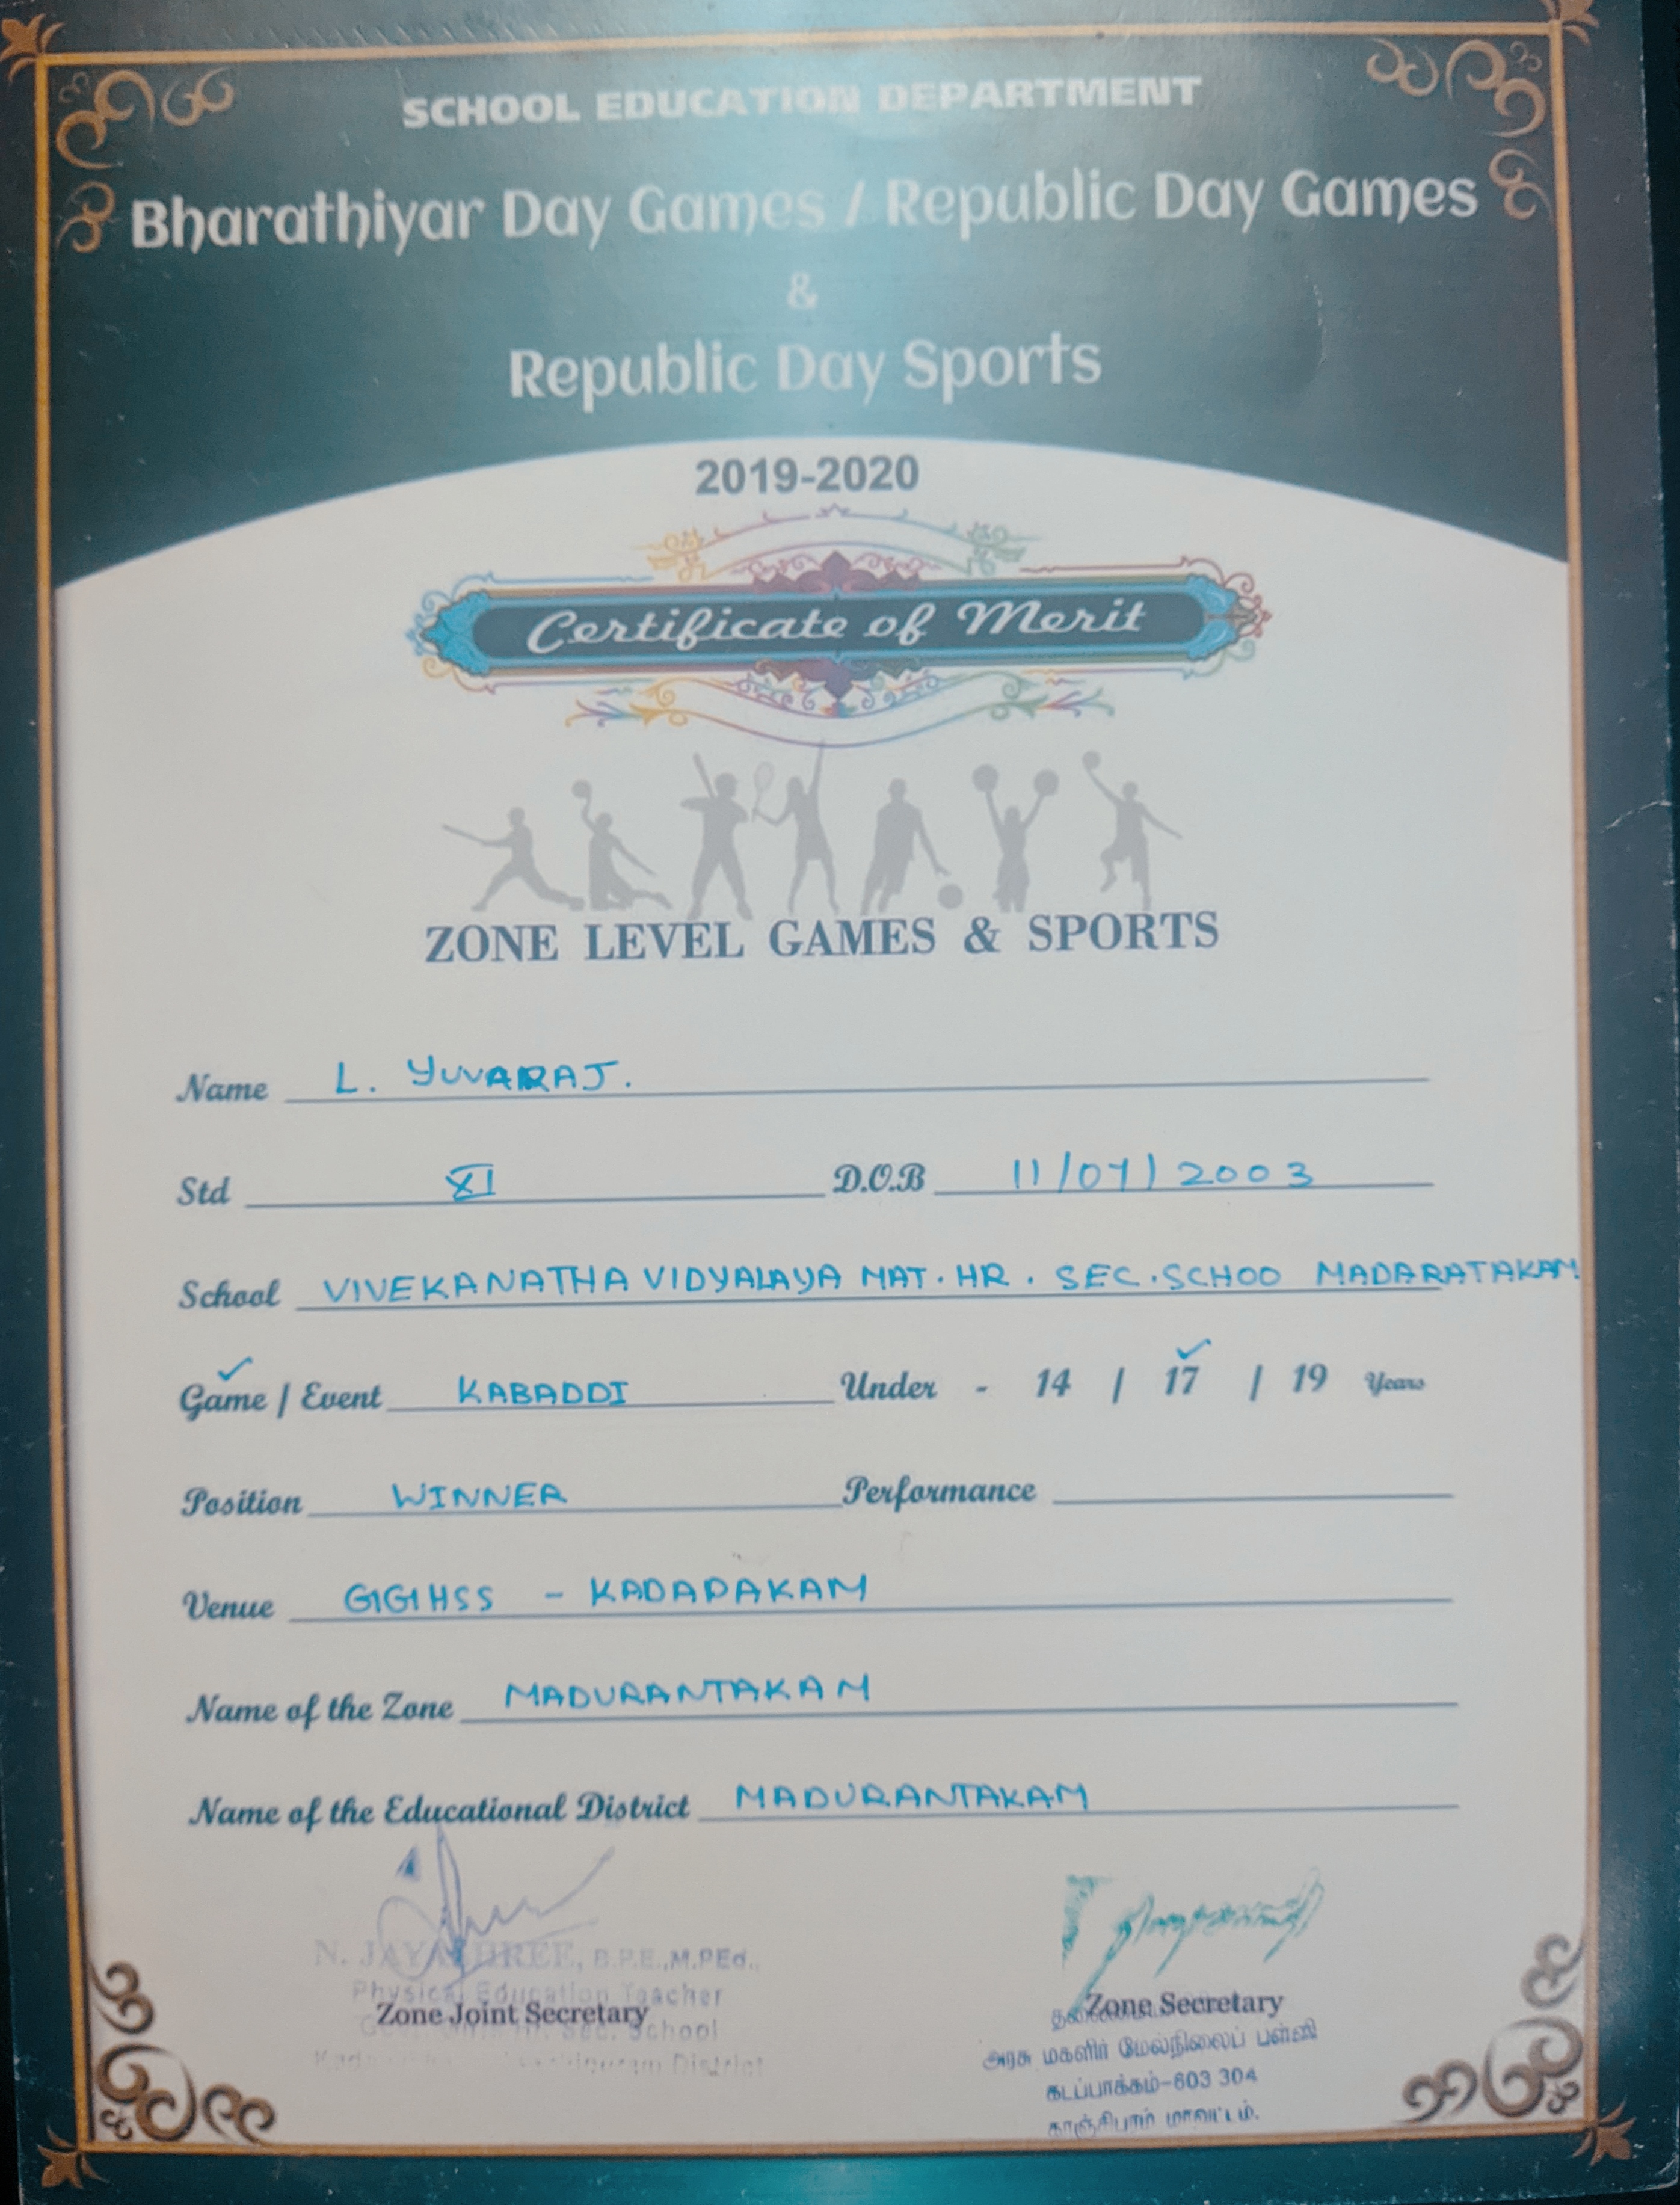 SCHOOL EDUCATION DEPARTMENT
Bharathiyar Day Games / Republic Day Games
&
Republic Day Sports
2019-2020
Certificate of Merit
ZONE LEVEL GAMES & SPORTS
Name L. YUVARAJ.
Std XI D.O.B 11/07/2003
School VIVEKANATHA VIDYALAYA MAT. HR. SEC. SCHOO MADARATAKAM
Game / Event KABADDI Under - 14 / 17 / 19 Years
Position WINNER Performance
Venue GGHSS - KADAPAKAM
Name of the Zone MADURANTAKAM
Name of the Educational District MADURANTAKAM
N. JAYASHREE, B.P.E.,M.PEd.,
Physical Education Teacher
Zone Joint Secretary
Sec. School
District
Zone Secretary
அரசு மகளிர் மேல்நிலைப் பள்ளி
கடப்பாக்கம்-603 304
காஞ்சிபுரம் மாவட்டம்.